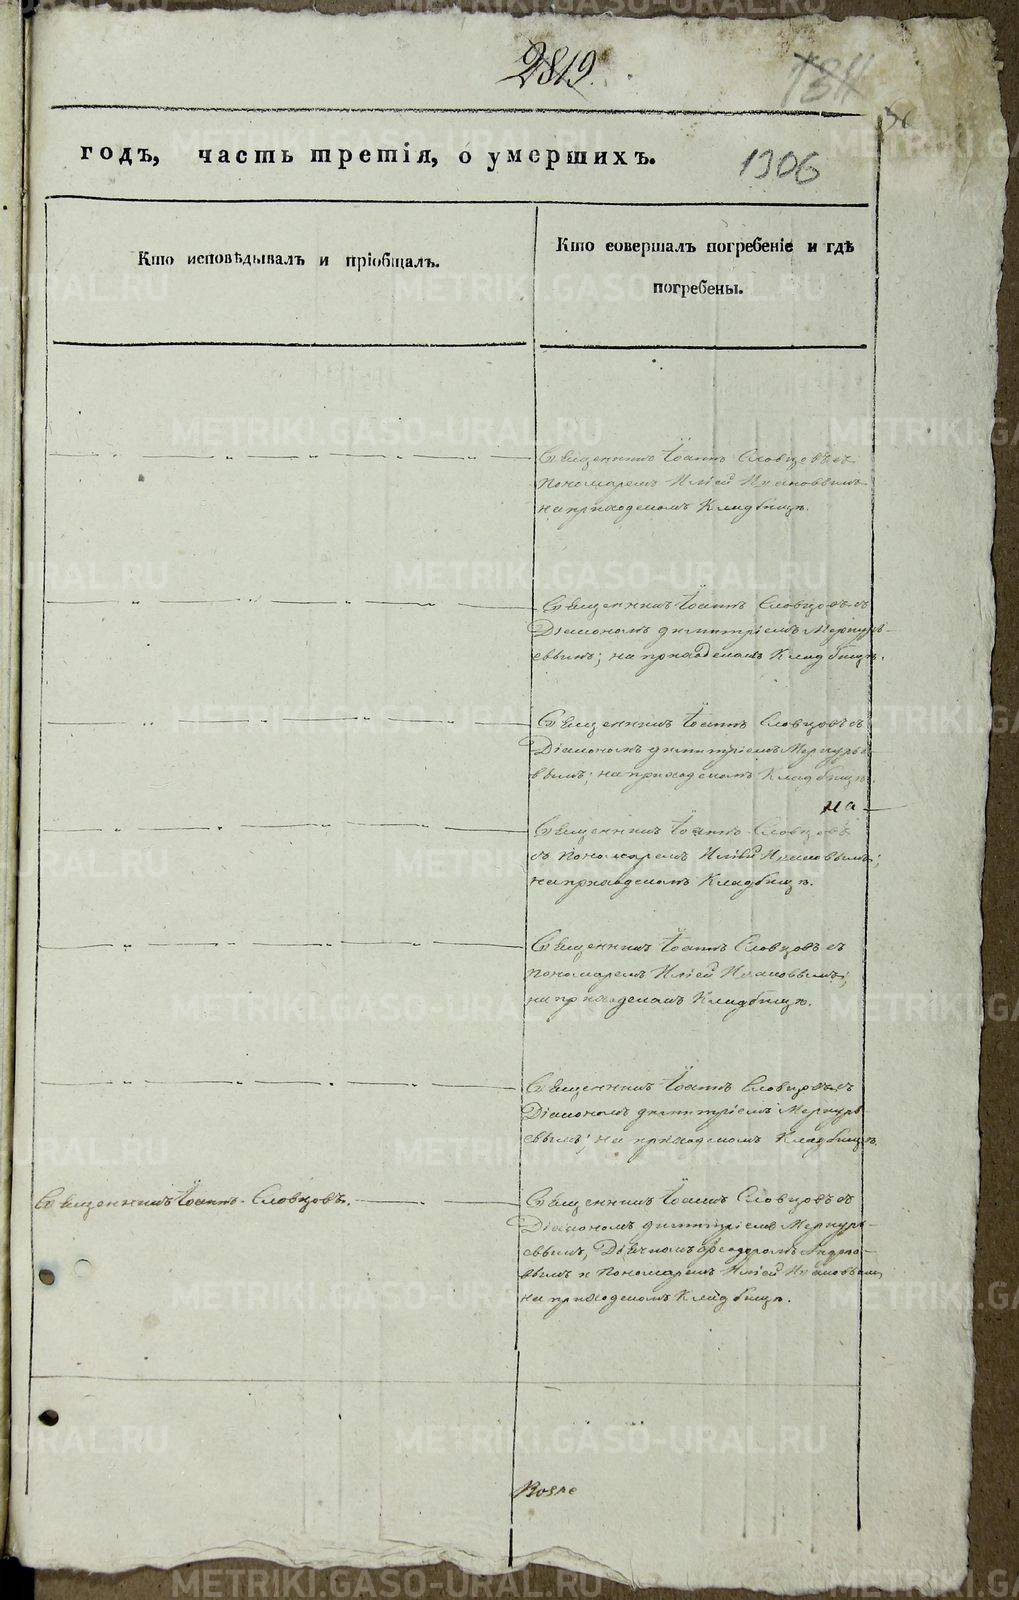 2819.
1311
1306
годъ, часть третія, о умершихъ.
Кто исповѣдывалъ и пріобщалъ.
Кто совершалъ погребеніе и гдѣ
погребены.
Священникъ Іоаннъ Словцовъ съ
Пономаремъ Иліей Ивановымъ
на приходскомъ Кладбищѣ.
Священникъ Іоаннъ Словцовъ съ
Діакономъ Димитріемъ Меркурь-
евымъ; на приходскомъ Кладбищѣ.
Священникъ Іоаннъ Словцовъ съ
Діакономъ Димитріемъ Меркурье-
вымъ; на приходскомъ Кладбищѣ.
на
Священникъ Іоаннъ Словцовъ
съ Пономаремъ Иліей Ивановымъ;
на приходскомъ Кладбищѣ.
Священникъ Іоаннъ Словцовъ съ
Пономаремъ Иліей Ивановымъ;
на приходскомъ Кладбищѣ.
Священникъ Іоаннъ Словцовъ съ
Діакономъ Димитріемъ Меркурь-
евымъ; на приходскомъ Кладбищѣ.
Священникъ Іоаннъ Словцовъ.
Священникъ Іоаннъ Словцовъ съ
Діакономъ Димитріемъ Меркурь-
евымъ, Дьячкомъ Ѳеодоромъ
вымъ и Пономаремъ Иліей Ивановымъ
на приходскомъ Кладбищѣ.
METRIKI.GASO-URAL.RU